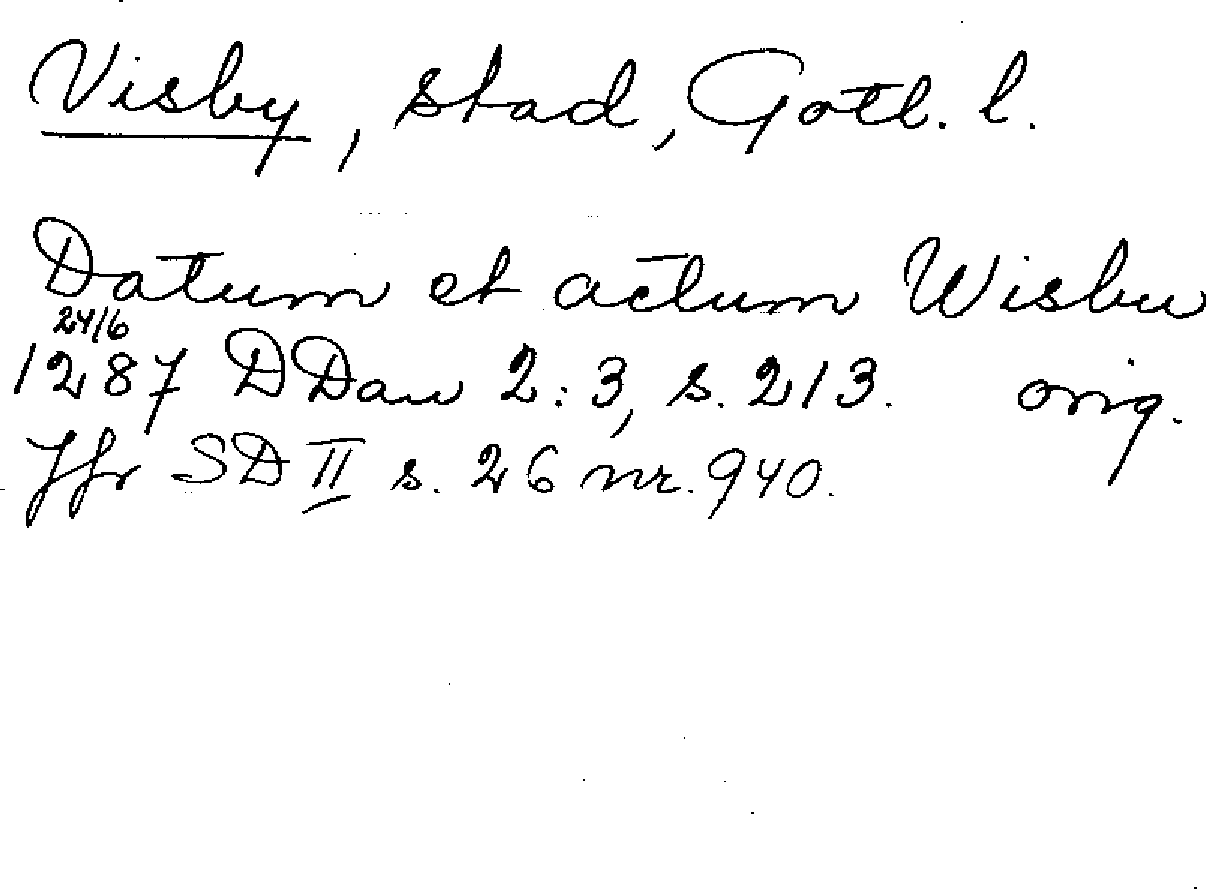 Visby, stad, Gotl. l.
Datum et actum Wisbu
24/6
1287 DDan 2:3, s. 213. orig.
Jfr SD II s. 26 nr. 940.